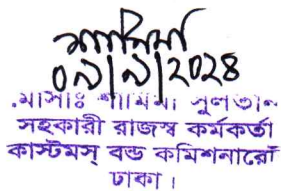 শামিমা
০৯/৯/২০২৪
মোসাঃ শামিমা সুলতানা
সহকারী রাজস্ব কর্মকর্তা
কাস্টমস্ বন্ড কমিশনারেট
ঢাকা।